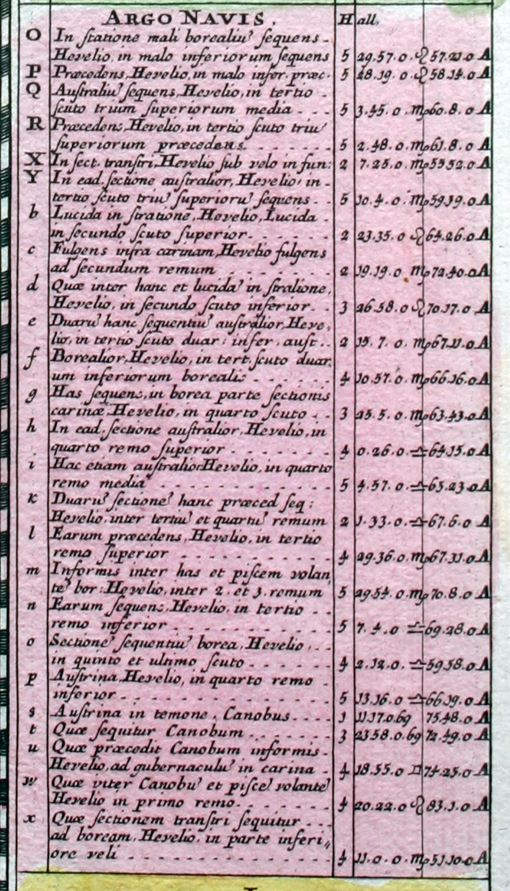 ARGO NAVIS. Hall.
O In statione mali borealiu' sequens-
Hevelio, in malo inferiorum sequens 5 29.57.0.♌57.21.0 A
P Præcedens, Hevelio, in malo infer. præc- 5 28.19.0.♌58.14.0 A
Q Australiu' sequens, Hevelio, in tertio
scuto trium superiorum media 5 3.45.0.♍60.8.0 A
R Præcedens, Hevelio, in tertio scuto triu'
superiorum præcedens 5 2.48.0.♍61.8.0 A
X In sect. transtri, Hevelio sub velo in fun: 2 7.25.0.♍55.52.0 A
Y In ead. sectione australior, Hevelio, in-
tertio scuto triu' superioru' sequens- 5 10.4.0.♍59.19.0 A
b Lucida in stratione, Hevelio, Lucida
in secundo scuto superior 2 23.35.0 ♌64.26.0 A
c Fulgens infra carinam, Hevelio fulgens
ad secundum remum 2 19.19.0 ♍72.40.0 A
d Quæ inter hanc et lucida' in stralione,
Hevelio, in secundo scuto inferior 3 26.58.0 ♌70.17.0 A
e Duaru' hanc sequentiu' australior, Heve,
lio, in tertio scuto duar: infer. aust 2 19.7.0 ♍67.11.0 A
f Borealior, Hevelio, in tert. scuto duar,
um inferiorum borealis 4 10.57.0 ♍66.16.0 A
g Has sequens, in borea parte sectionis
carinæ, Hevelio, in quarto scuto 3 25.5.0 ♍63.43.0 A
h In ead. sectione australior, Hevelio, in
quarto remo superior 4 0.26.0 ♎64.15.0 A
i Hac etiam australior Hevelio, in quarto
remo media 5 4.57.0 ♎65.23.0 A
k Duaru' sectione' hanc præced seq:
Hevelio, inter tertiu' et quartu' remum 2 1.33.0 ♎67.6.0 A
l Earum præcedens, Hevelio, in tertio
remo superior 4 29.36.0 ♍67.31.0 A
m Informis inter has et piscem volan,
te' bor: Hevelio, inter 2. et 3. remum 5 29.54.0 ♍70.8.0 A
n Earum sequens, Hevelio, in tertio
remo inferior 5 7.4.0 ♎69.28.0 A
o Sectione' sequentiu' borea, Hevelio,
in quinto et ultimo scuto 4 2.12.0 ♎59.58.0 A
p Austrina, Hevelio, in quarto remo
inferior 5 13.16.0 ♎66.19.0 A
s Austrina in temone, Canobus 1 11.17.0 ♋ 75.48.0 A
t Quæ sequitur Canobum 3 23.58.0 ♋ 72.49.0 A
u Quæ præcedit Canobum informis-
Hevelio, ad gubernaculu' in carina 4 18.55.0 ♊74.25.0 A
w Quæ inter Canobu' et pisce' volante'
Hevelio in primo remo 4 20.22.0 ♌83.1.0 A
x Quæ sectionem transtri sequitur
ad boream, Hevelio, in parte inferi,,
ore veli 4 11.0.0 ♍51.10.0 A